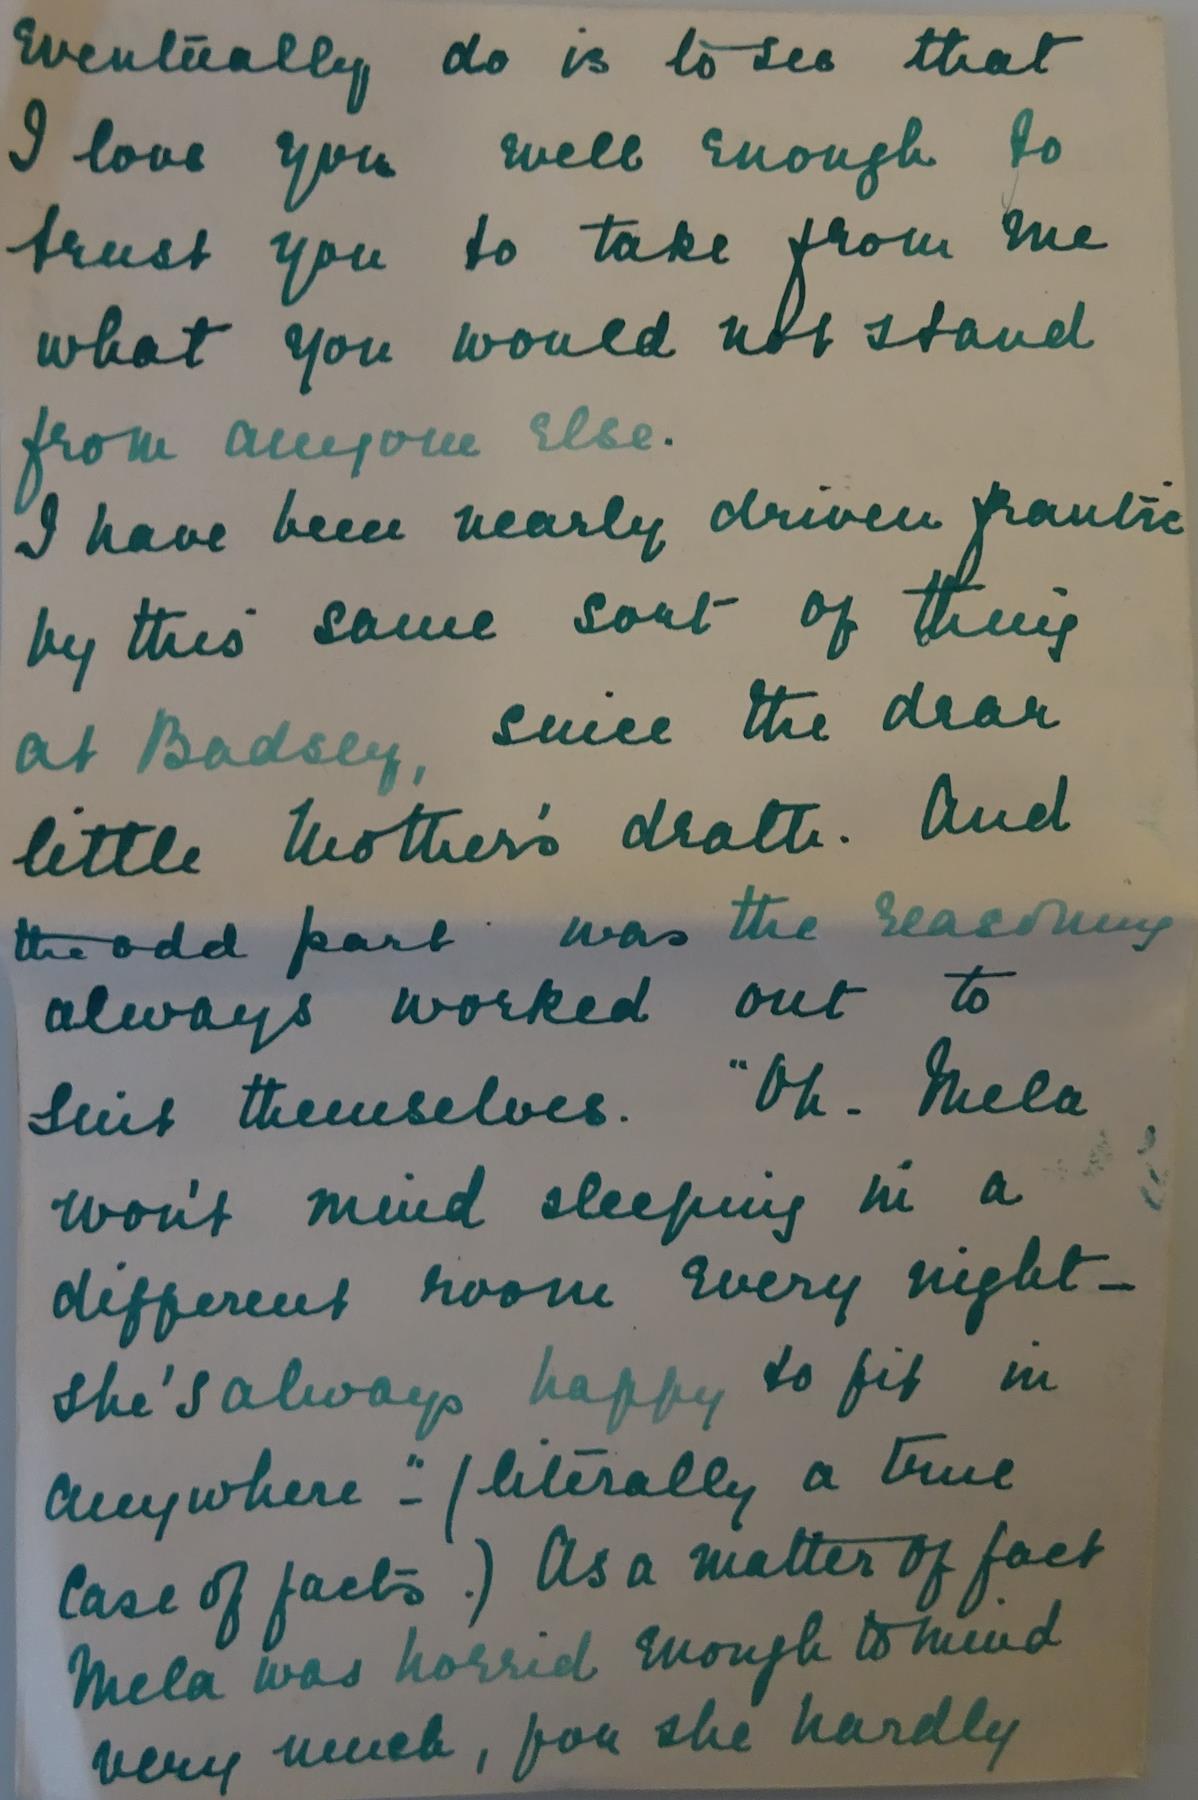 Eventually do is to see that
I love you well enough to
trust you to take from me
what you would not stand
from anyone else.
I have been nearly driven frantic
by this same sort of thing
at Badsey, since the dear
little Mother's death. And
the odd part was the reasoning
always worked out to
suit themselves. "Oh - Mela
won't mind sleeping in a
different room every night -
she's always happy to fit in
anywhere" - (literally a true
case of facts.) As a matter of fact
Mela was horrid enough to mind
very much, for she hardly